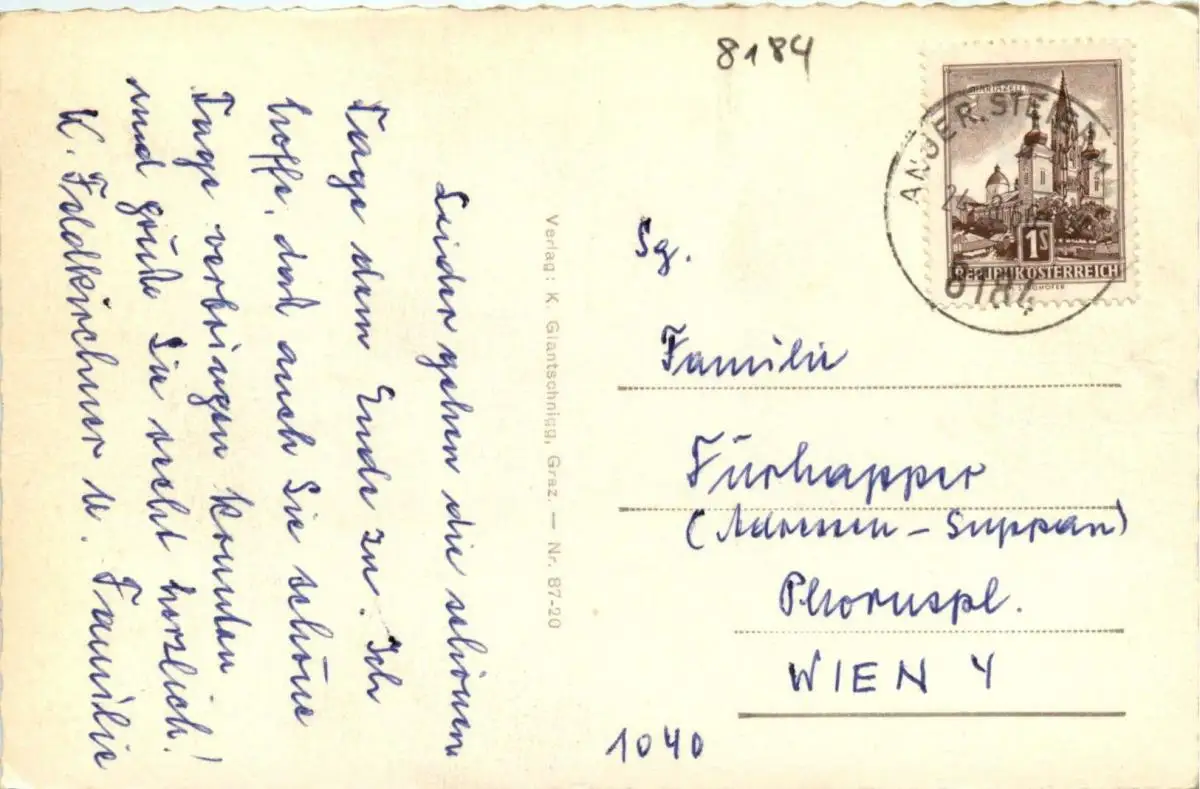 8184
Leider gehen die schönen
Tage dem Ende zu. Ich
hoffe, daß auch Sie schöne
Tage verbringen konnten
und grüße Sie recht herzlich!
K. Feldkirchner u. Familie
Verlag: K. Glantschnigg, Graz. — Nr. 87-20
MARIAZELL
1S
REPUBLIK ÖSTERREICH
ANGER, STEIERM
8184
Sg.
Familie
Fürhapper
(Adressen - Suppan)
Phoruspl.
WIEN 4
1040